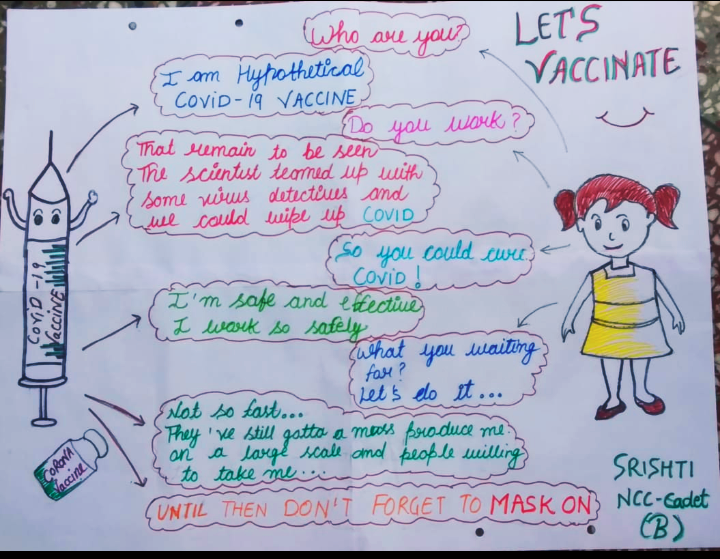 Who are you?
LET'S
VACCINATE
I am Hypothetical
COViD-19 VACCINE
Do you work?
That remain to be seen
The scientist teamed up with
some virus detectives and
we could wipe up COVID
So you could cure
COViD!
I'm safe and effective
I work so safely
What you waiting
for?
Let's do it...
Not so fast...
They've still gotta a mass produce me
on a large scale and people willing
to take me...
UNTIL THEN DON'T FORGET TO MASK ON
COViD-19
VACCiNE
CORONA
Vaccine
SRISHTI
NCC-Cadet
(B)